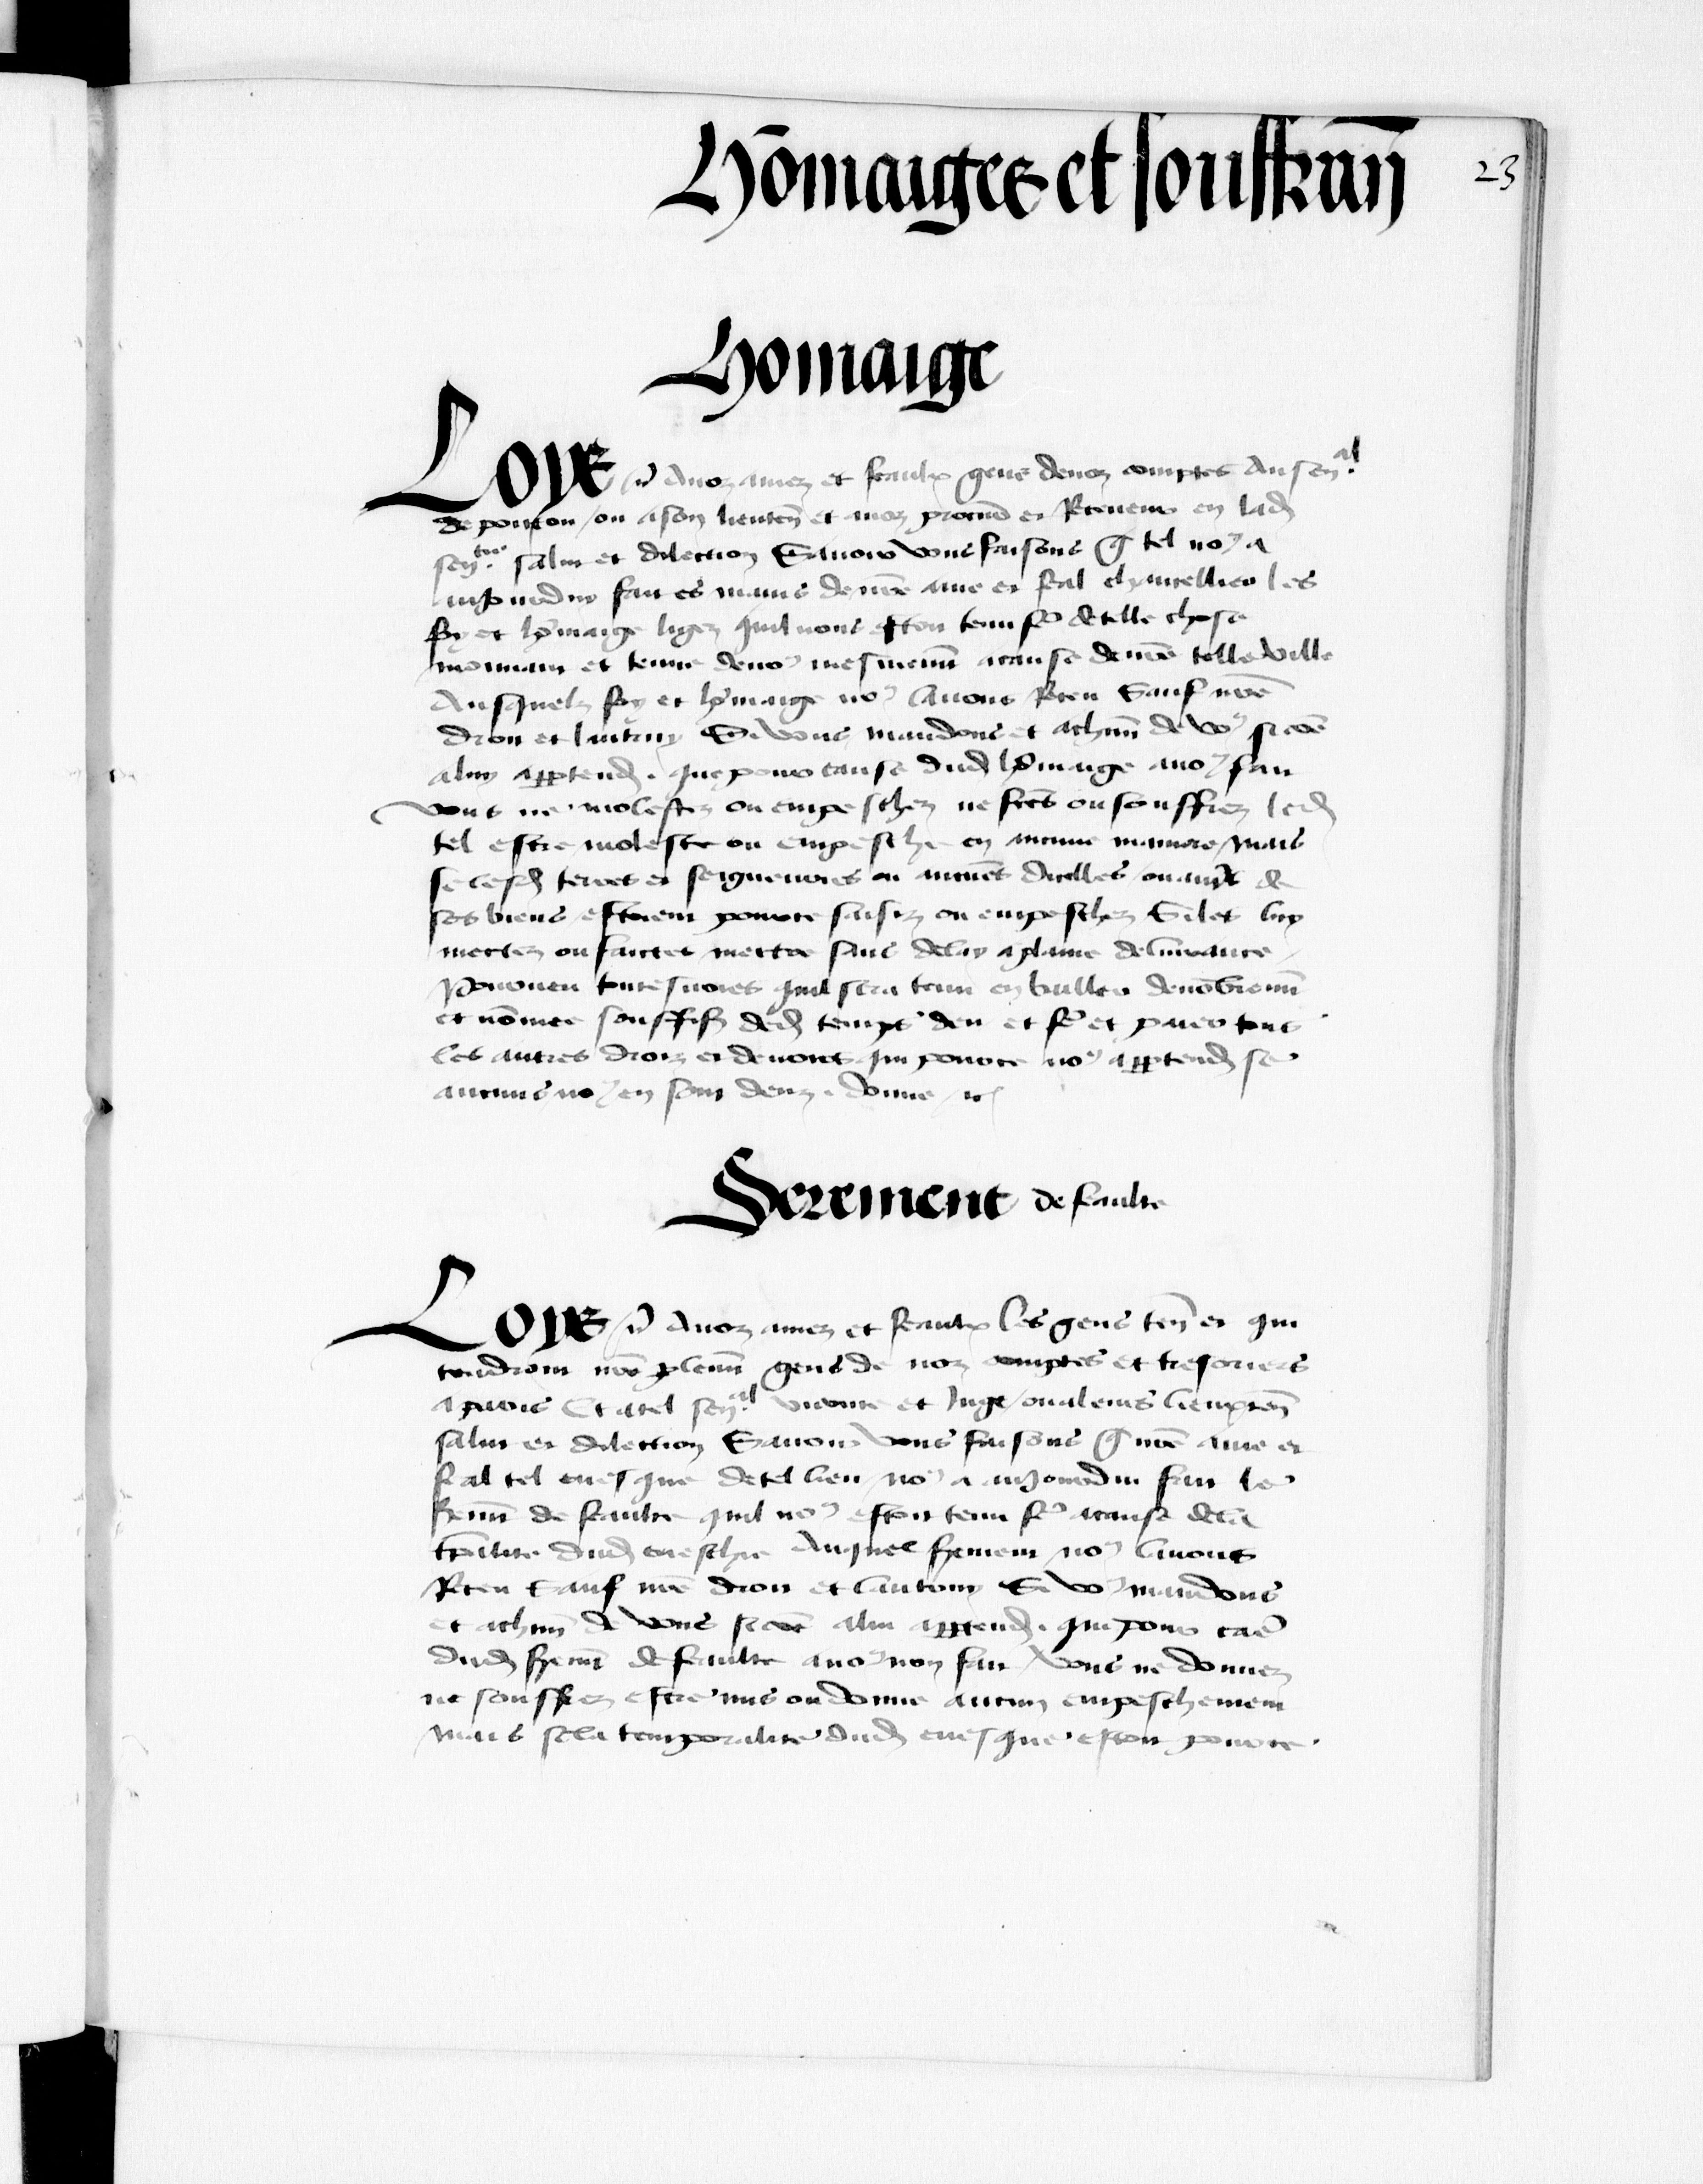 Hōmaiges et souffrāń
23
Homaige
Loys &c̄ Anoz amez et feaulx gens denoz comptes Au senal
de poictou / ou ason lieuten̄ et noz procur̄ et Receveur en lad̄
sen̄ salut et dilection Savoir vous faisons q̄ tel noꝰ a
auiourduy fait es mains denr̄e ame et feal chancellier les
foy et hōmaige ligez quil nous estoit tenu fēr de telle chose
mouuant et tenue denoꝰ mesmemn̄t acause denr̄e telle ville
Ausquelz foy et hōmaige noꝰ lauons Rceu Sauf nr̄e
droit et lautruy Si vous mandons et achūn de voꝰ si cōe
aluy appartend̄. que pour cause dud̄ hōmaige anoꝰ fait
vous ne molestez ou empeschez ne fēctes ou souffrez led̄
tel estre moleste ou empesche en aucune maniere / Mais
se lesd̄ terres et seigneuries ou aucūes dicelles / ou autr̄ de
ses biens / estoient pource saisiz ou empeschez Si les luy
mectez ou faictes mettre sans delay aplaine deliurance /
Pourueu toutesuoies quil sera tenu en bailler denōbremn̄t
et nōmee souffis̄ ded̄ temps deu et fēr et paier tous
les autres droiz et deuoirs qui pource noꝰ appartend̄ se
aucuns noꝰ en sont deuz. donne &c̄
Serement de feaulte
Loys &c̄ Anoz amez et feaulx les gens ten̄ et qui
tendront nr̄e plemn̄t gens de noz comptes et tresoriers
aparis Et atel senal viconte et Juge / ou aleurs lieuxten̄
salut et dilection Sauoir vous faisons q̄ nr̄e ame et
feal tel euesque de tel lieu / noꝰ a auiourdui fait le
sermn̄t de feaulte quil noꝰ estoit tenu fēr acause dela
tp̄alite dud̄ euesche Auquel serement noꝰ lauons
Rceu Sauf nr̄e droit et lautruy Si voꝰ mandons
et achūn de vous si cōe alui appartend̄. que pour caē
dud̄ sermn̄t de feaulte anoꝰ fait / vous ne donnez
ne souffrez estre mis ou donne aucun empeschement
Mais se la temporalite dud̄ euesque estoit pource